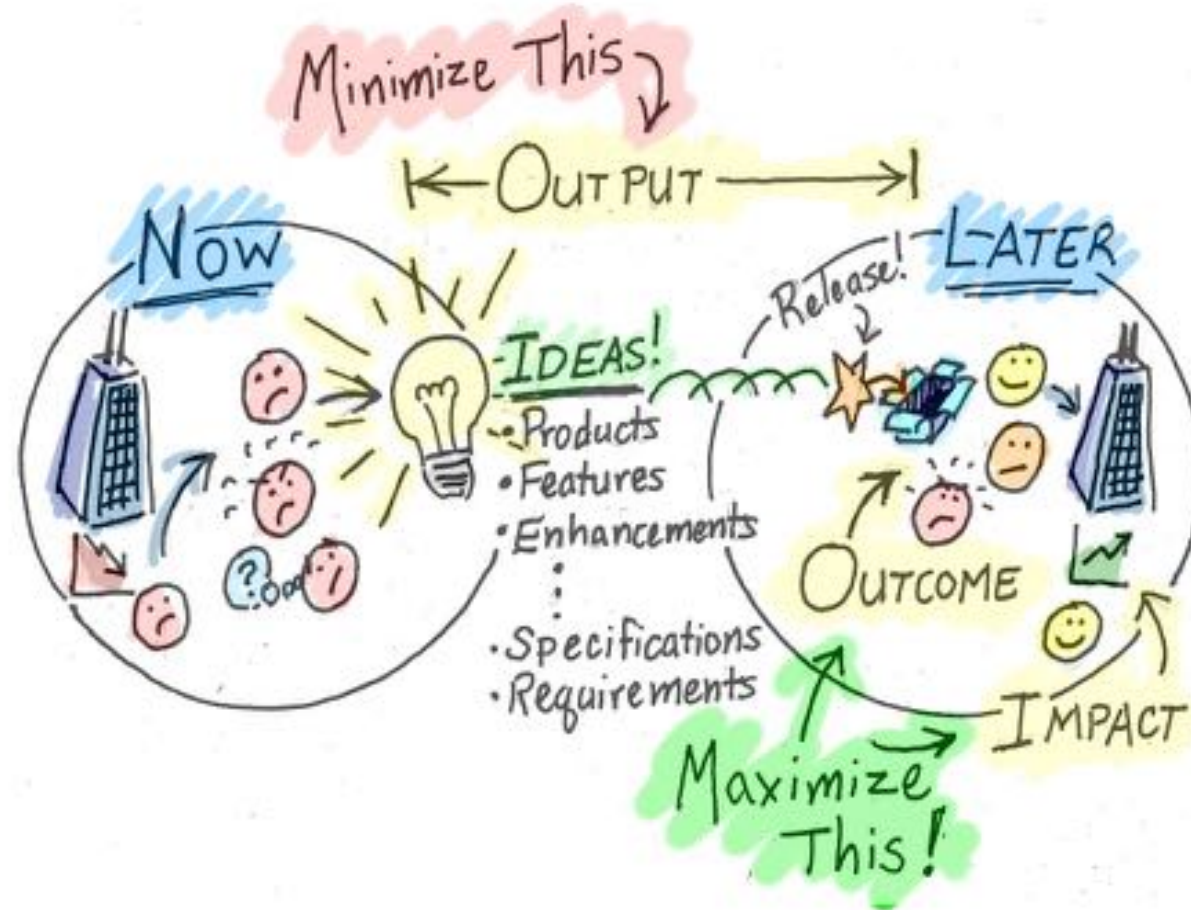 Minimize This
OUTPUT
NOW
LATER
Release!
IDEAS!
• Products
• Features
• Enhancements
• Specifications
• Requirements
?
OUTCOME
IMPACT
Maximize
This!